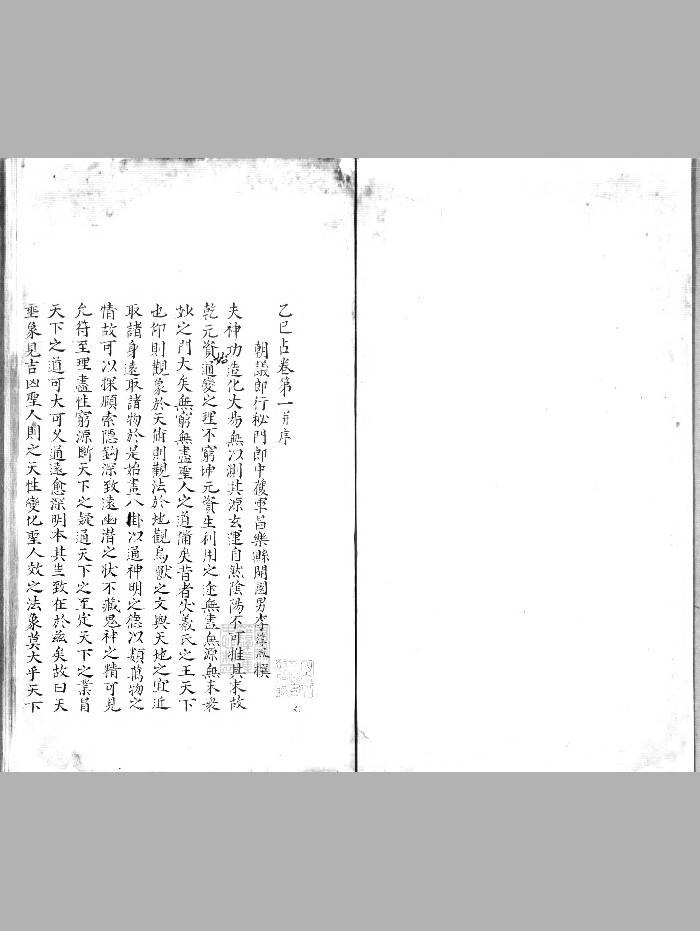 乙巳占卷第一并序
朝議郎行秘閣郎中護軍昌樂縣開國男李淳風撰
夫神功造化大易無以測其源玄運自然陰陽不可推其末故
乾元資始通變之理不窮坤元資生利用之途無盡無源無末衆
妙之門大矣無窮無盡聖人之道備矣昔者伏羲氏之王天下
也仰則觀象於天術則觀法於地觀鳥獸之文與天地之宜近
取諸身遠取諸物於是始畫八卦以通神明之德以類萬物之
情故可以探賾索隱鈎深致遠幽潛之狀不藏鬼神之精可見
允符至理盡性窮源斷天下之疑通天下之至定天下之業冒
天下之道可大可久通遠愈深明本其旨致在於兹矣故曰天
垂象見吉凶聖人則之天性變化聖人效之法象莫大乎天下